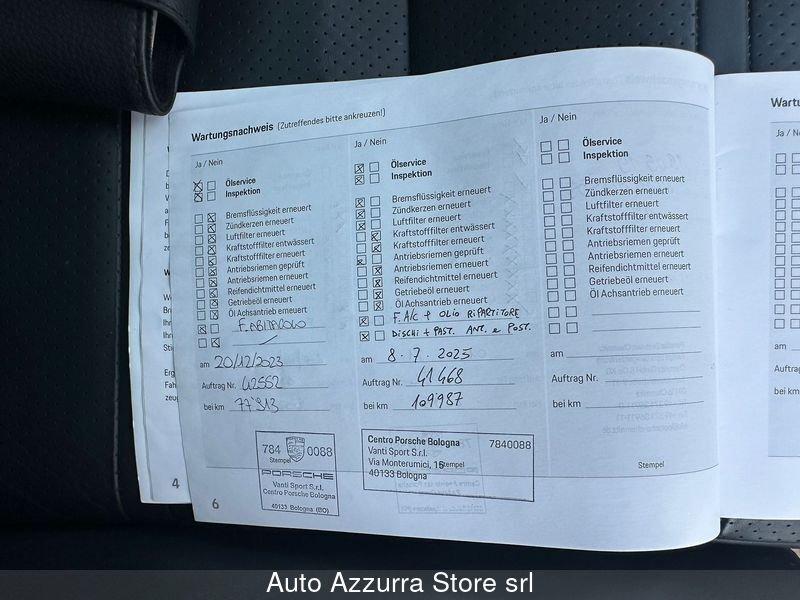 Wartungsnachweis (Zutreffendes bitte ankreuzen!)
Ja / Nein
Ölservice
Inspektion
Bremsflüssigkeit erneuert
Zündkerzen erneuert
Luftfilter erneuert
Kraftstofffilter entwässert
Kraftstofffilter erneuert
Antriebsriemen geprüft
Antriebsriemen erneuert
Reifendichtmittel erneuert
Getriebeöl erneuert
Öl Achsantrieb erneuert
F. ABITACOLO
am 20/12/2023
Auftrag Nr. 42552
bei km 77'913
784 0088
Stempel
PORSCHE
Vanti Sport S.r.l.
Centro Porsche Bologna
40133 Bologna (BO)
6
Ja / Nein
Ölservice
Inspektion
Bremsflüssigkeit erneuert
Zündkerzen erneuert
Luftfilter erneuert
Kraftstofffilter entwässert
Kraftstofffilter erneuert
Antriebsriemen geprüft
Antriebsriemen erneuert
Reifendichtmittel erneuert
Getriebeöl erneuert
Öl Achsantrieb erneuert
F. A/C + OLIO RIPARTITORE
DISCHI + PAST. ANT. e POST.
am 8.7.2025
Auftrag Nr. 41468
bei km 109987
Centro Porsche Bologna 7840088
Vanti Sport S.r.l.
Via Monterumici, 16
Stempel
40133 Bologna
Ja / Nein
Ölservice
Inspektion
Bremsflüssigkeit erneuert
Zündkerzen erneuert
Luftfilter erneuert
Kraftstofffilter entwässert
Kraftstofffilter erneuert
Antriebsriemen geprüft
Antriebsriemen erneuert
Reifendichtmittel erneuert
Getriebeöl erneuert
Öl Achsantrieb erneuert
am
Auftrag Nr.
bei km
Stempel
4
Ja / N
am
Auftrag
bei km
Auto Azzurra Store srl